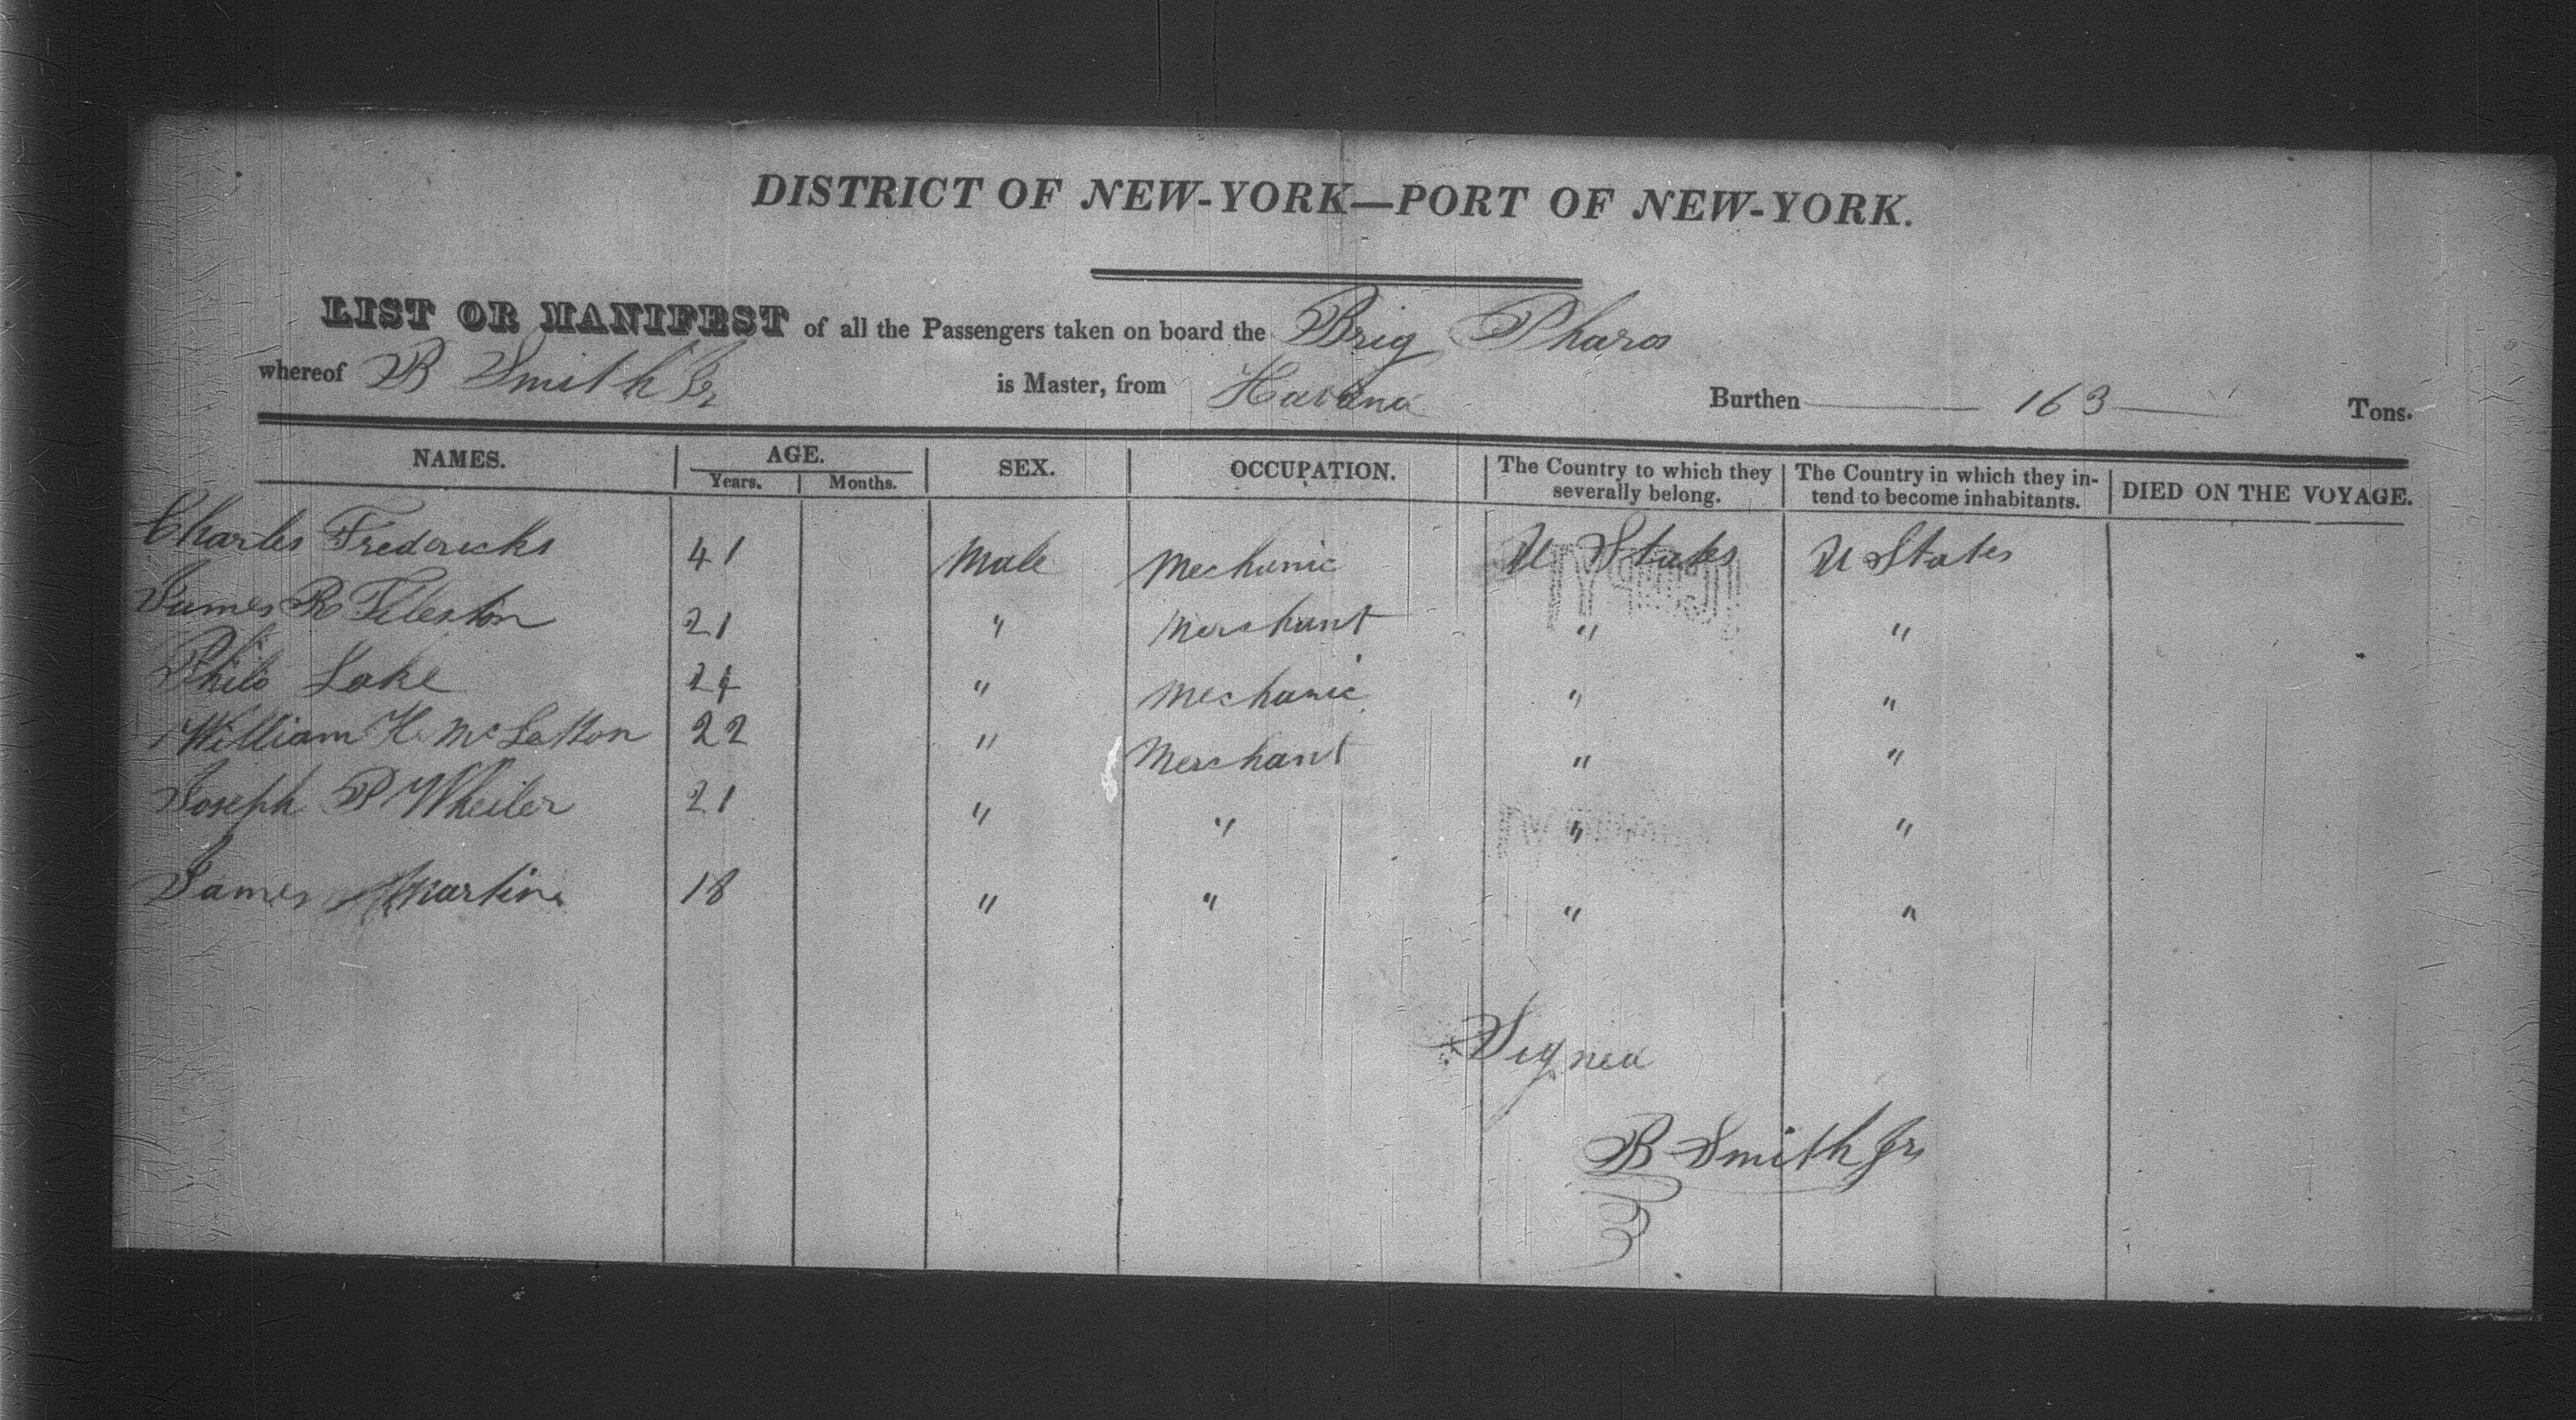 DISTRICT OF NEW-YORK—PORT OF NEW-YORK.
LIST OR MANIFEST of all the Passengers taken on board the Brig Pharos
whereof B Smith Jr is Master, from Havana Burthen 163 Tons.
NAMES. AGE. SEX. OCCUPATION. The Country to which they severally belong. The Country in which they intend to become inhabitants. DIED ON THE VOYAGE.
Years. Months.
Charles Fredericks 41 Male Mechanic U States U States
James R Tileston 21 " Merchant " "
Philo Lake 24 " Mechanic " "
William H. Mc " 22 " Merchant " "
Joseph P Wheeler 21 " " " "
James Martin 18 " " " "
Signed
B Smith Jr